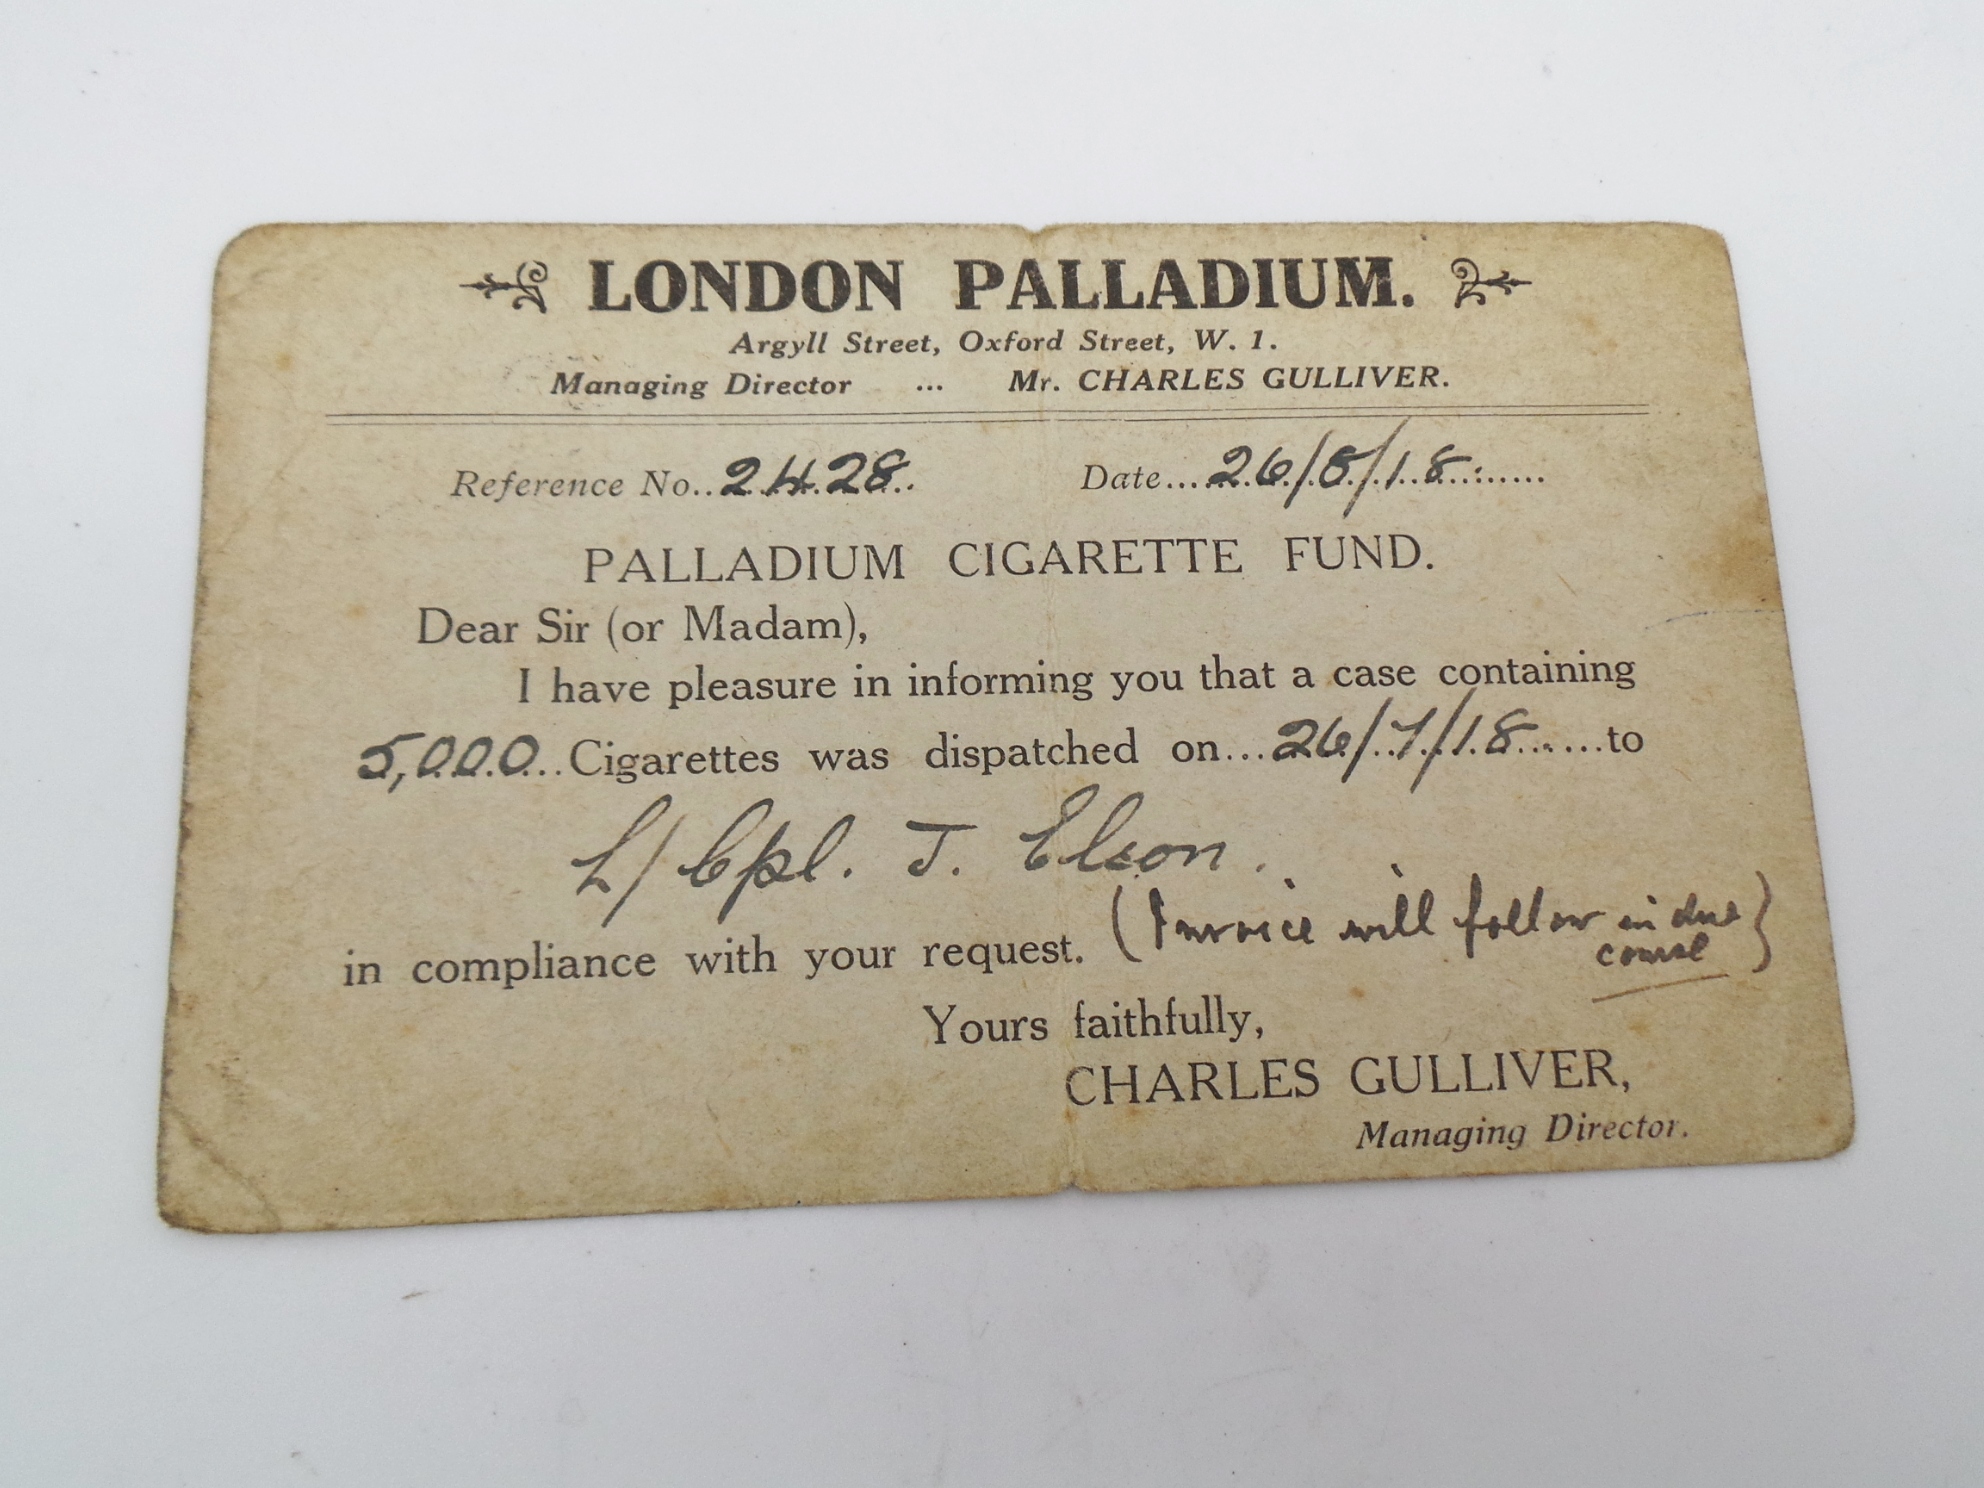 LONDON PALLADIUM.
Argyll Street, Oxford Street, W. 1.
Managing Director ... Mr. CHARLES GULLIVER.
Reference No..2428.. Date...26/8/18......
PALLADIUM CIGARETTE FUND.
Dear Sir (or Madam),
I have pleasure in informing you that a case containing
5,000...Cigarettes was dispatched on...26/7/18......to
L/Cpl. J. Elson.
in compliance with your request. (Invoice will follow in due
course)
Yours faithfully,
CHARLES GULLIVER,
Managing Director.